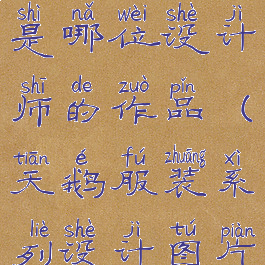 shì nǎ wèi shè jì
是哪位设计
shī de zuò pǐn
师的作品（
tiān é fú zhuāng xì
天鹅服装系
liè shè jì tú piàn
列设计图片